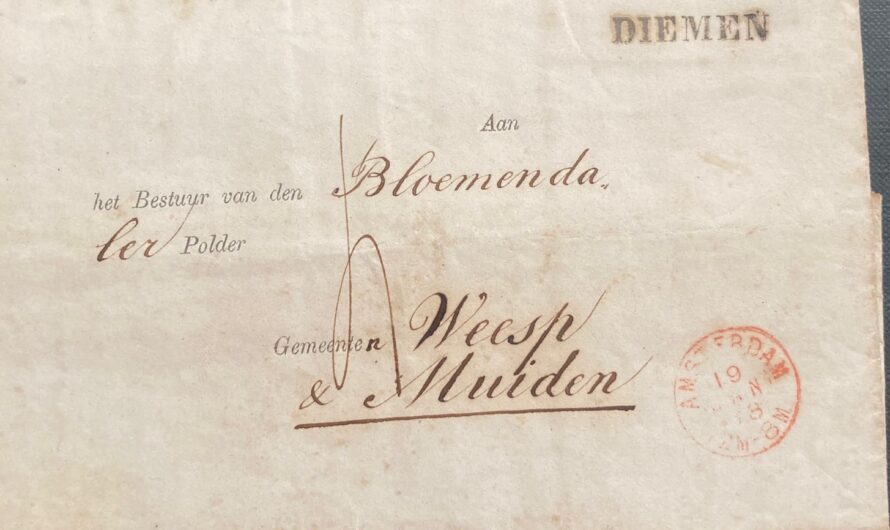 DIEMEN
Aan
het Bestuur van den Bloemenda„
ler Polder
Gemeenten Weesp
& Muiden
AMSTERDAM
19
8M